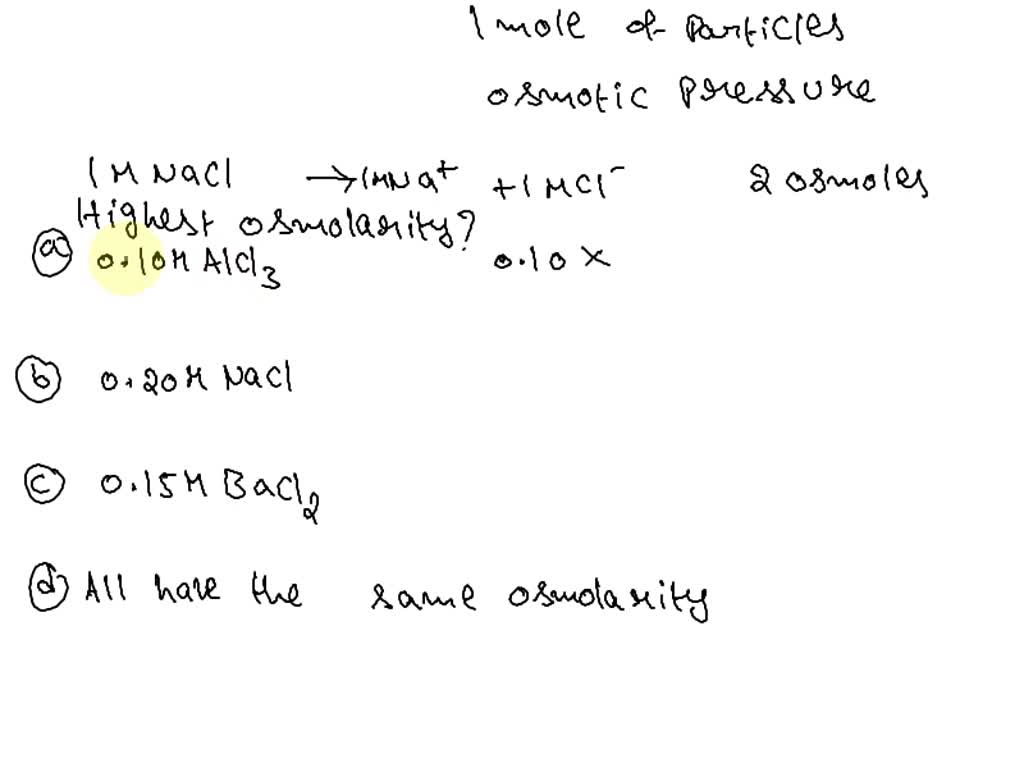 1 mole of Particles
osmotic Pressure
1 M NaCl → 1M Na⁺ + 1 M Cl⁻ 2 osmoles
Highest osmolarity?
(a) 0.10M AlCl₃ 0.10 ×
(b) 0.20M NaCl
(c) 0.15M BaCl₂
(d) All have the same osmolarity